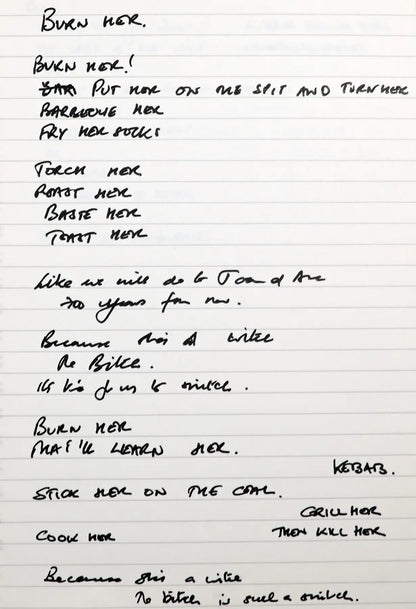 BURN HER.
BURN HER!
PUT HER ON THE SPIT AND TURN HER
BARBECUE HER
FRY HER SOCKS
TORCH HER
ROAST HER
BASTE HER
TOAST HER
Like we will do to Joan of Arc
years from now.
Because she's a witch
The Bitch.
us to snitch.
BURN HER
THAT'LL LEARN HER.
KEBAB.
STICK HER ON THE COAL.
GRILL HER
COOK HER
THEN KILL HER
Because she's a witch
The bitch is such a snitch.